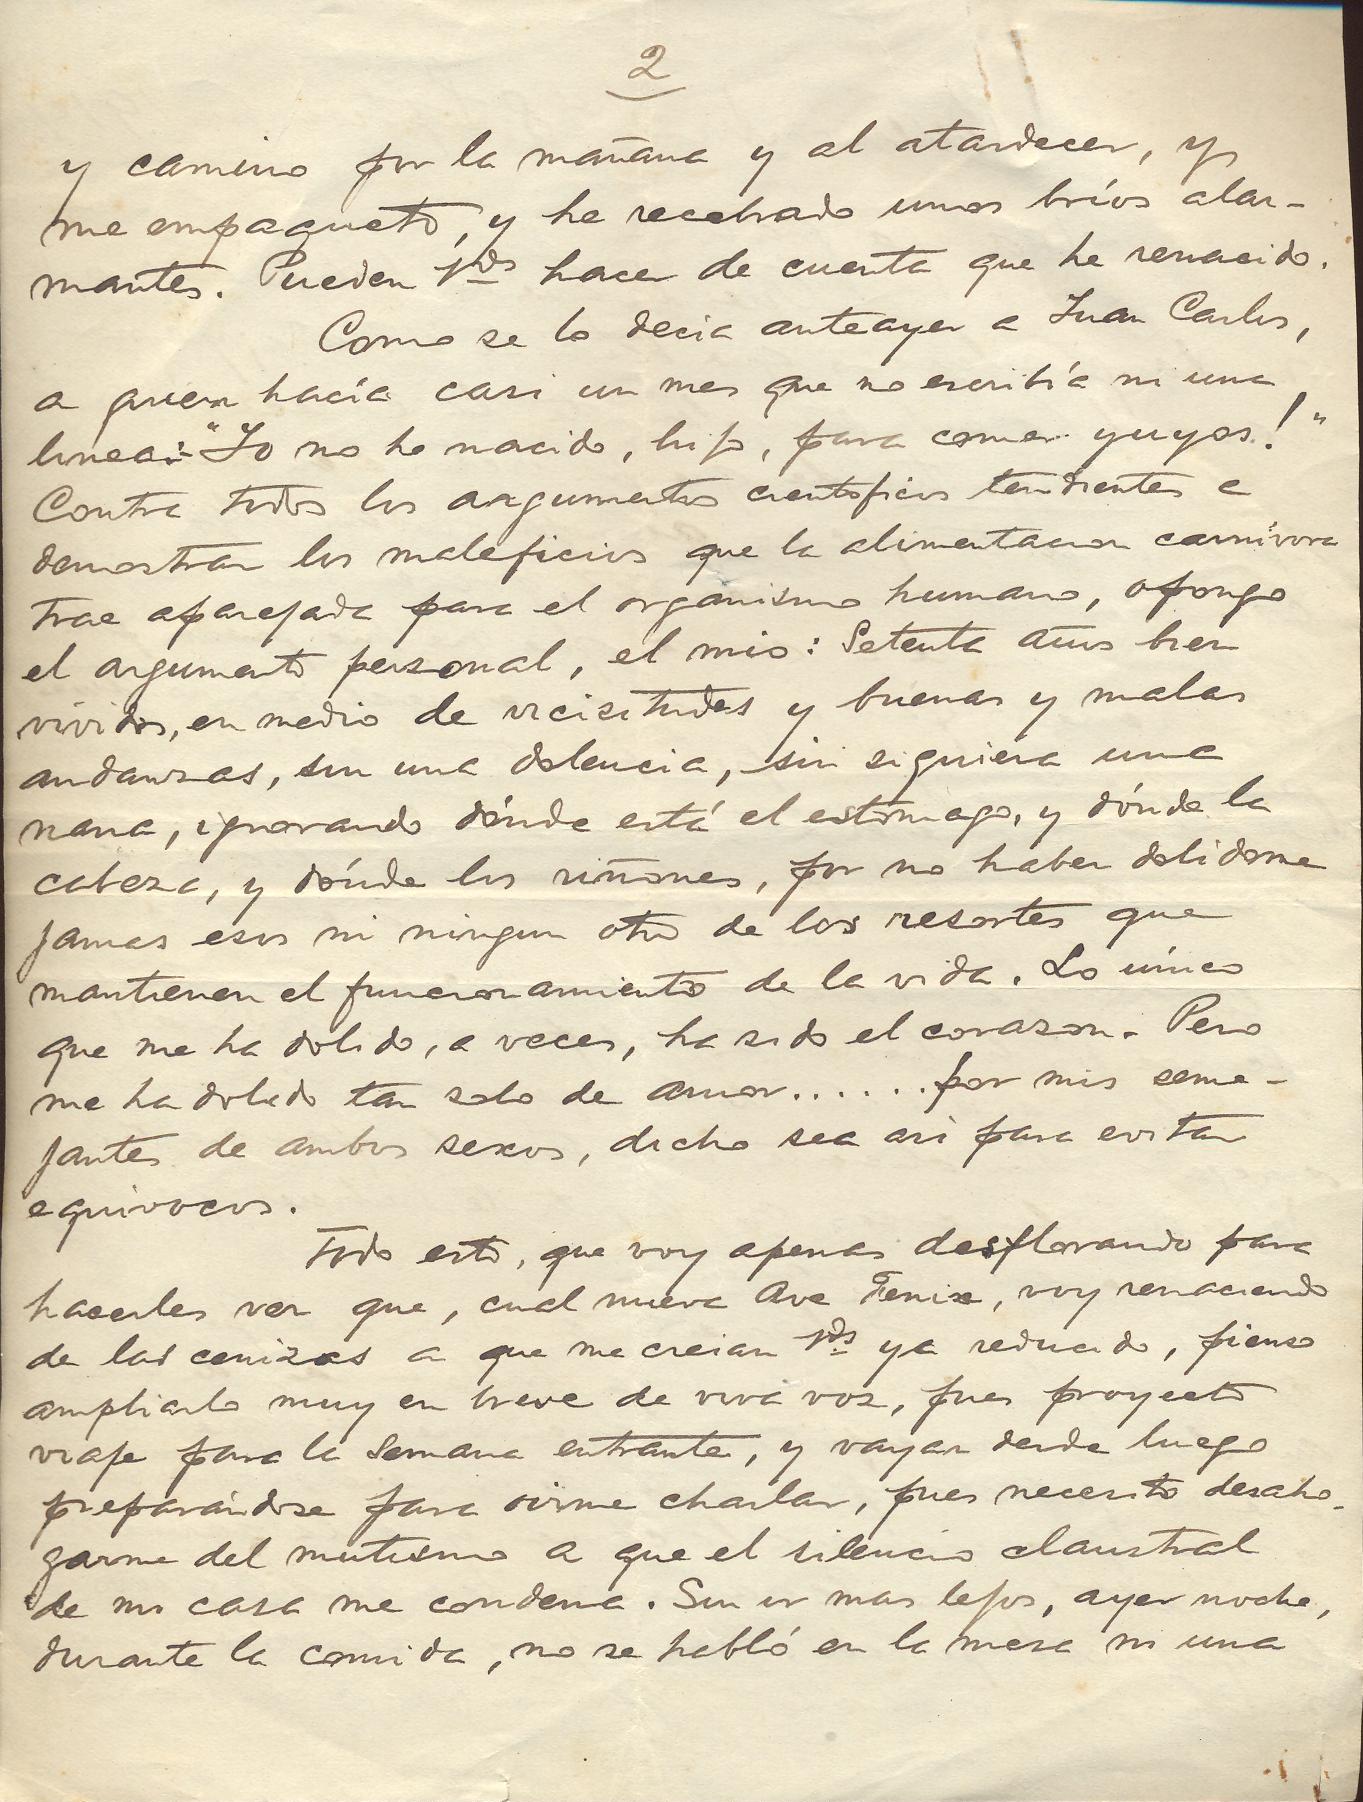 2
y camino por la mañana y al atardecer, y
me empaqueto, y he recobrado unos bríos alar-
mantes. Pueden Vds hacer de cuenta que he renacido.
Como se lo decia anteayer a Juan Carlos,
a quien hacía casi un mes que no escribía ni una
linea: "Yo no he nacido, hijo, para comer yuyos!"
Contra todos los argumentos cientificos tendientes a
demostrar los maleficios que la alimentacion carnívora
trae aparejada para el organismo humano, opongo
el argumento personal, el mio: Setenta años bien
vividos, en medio de vicisitudes y buenas y malas
andanzas, sin una dolencia, sin siquiera una
nana, ignorando dónde está el estómago, y dónde la
cabeza, y dónde los riñones, por no haber dolidome
jamas esos ni ningun otro de los resortes que
mantienen el funcionamiento de la vida. Lo único
que me ha dolido, a veces, ha sido el corazon. Pero
me ha dolido tan solo de amor...... por mis seme-
jantes de ambos sexos, dicho sea asi para evitar
equivocos.
Todo esto, que voy apenas desflorando para
hacerles ver que, cual nueva Ave Fenix, voy renaciendo
de las cenizas a que me creian Vds ya reducido, pienso
ampliarlo muy en breve de viva voz, pues proyecto
viaje para la Semana entrante, y vayan desde luego
preparándose para oirme charlar, pues necesito desaho-
garme del mutismo a que el silencio claustral
de mi casa me condena. Sin ir mas lejos, ayer noche,
durante la comida, no se habló en la mesa ni una